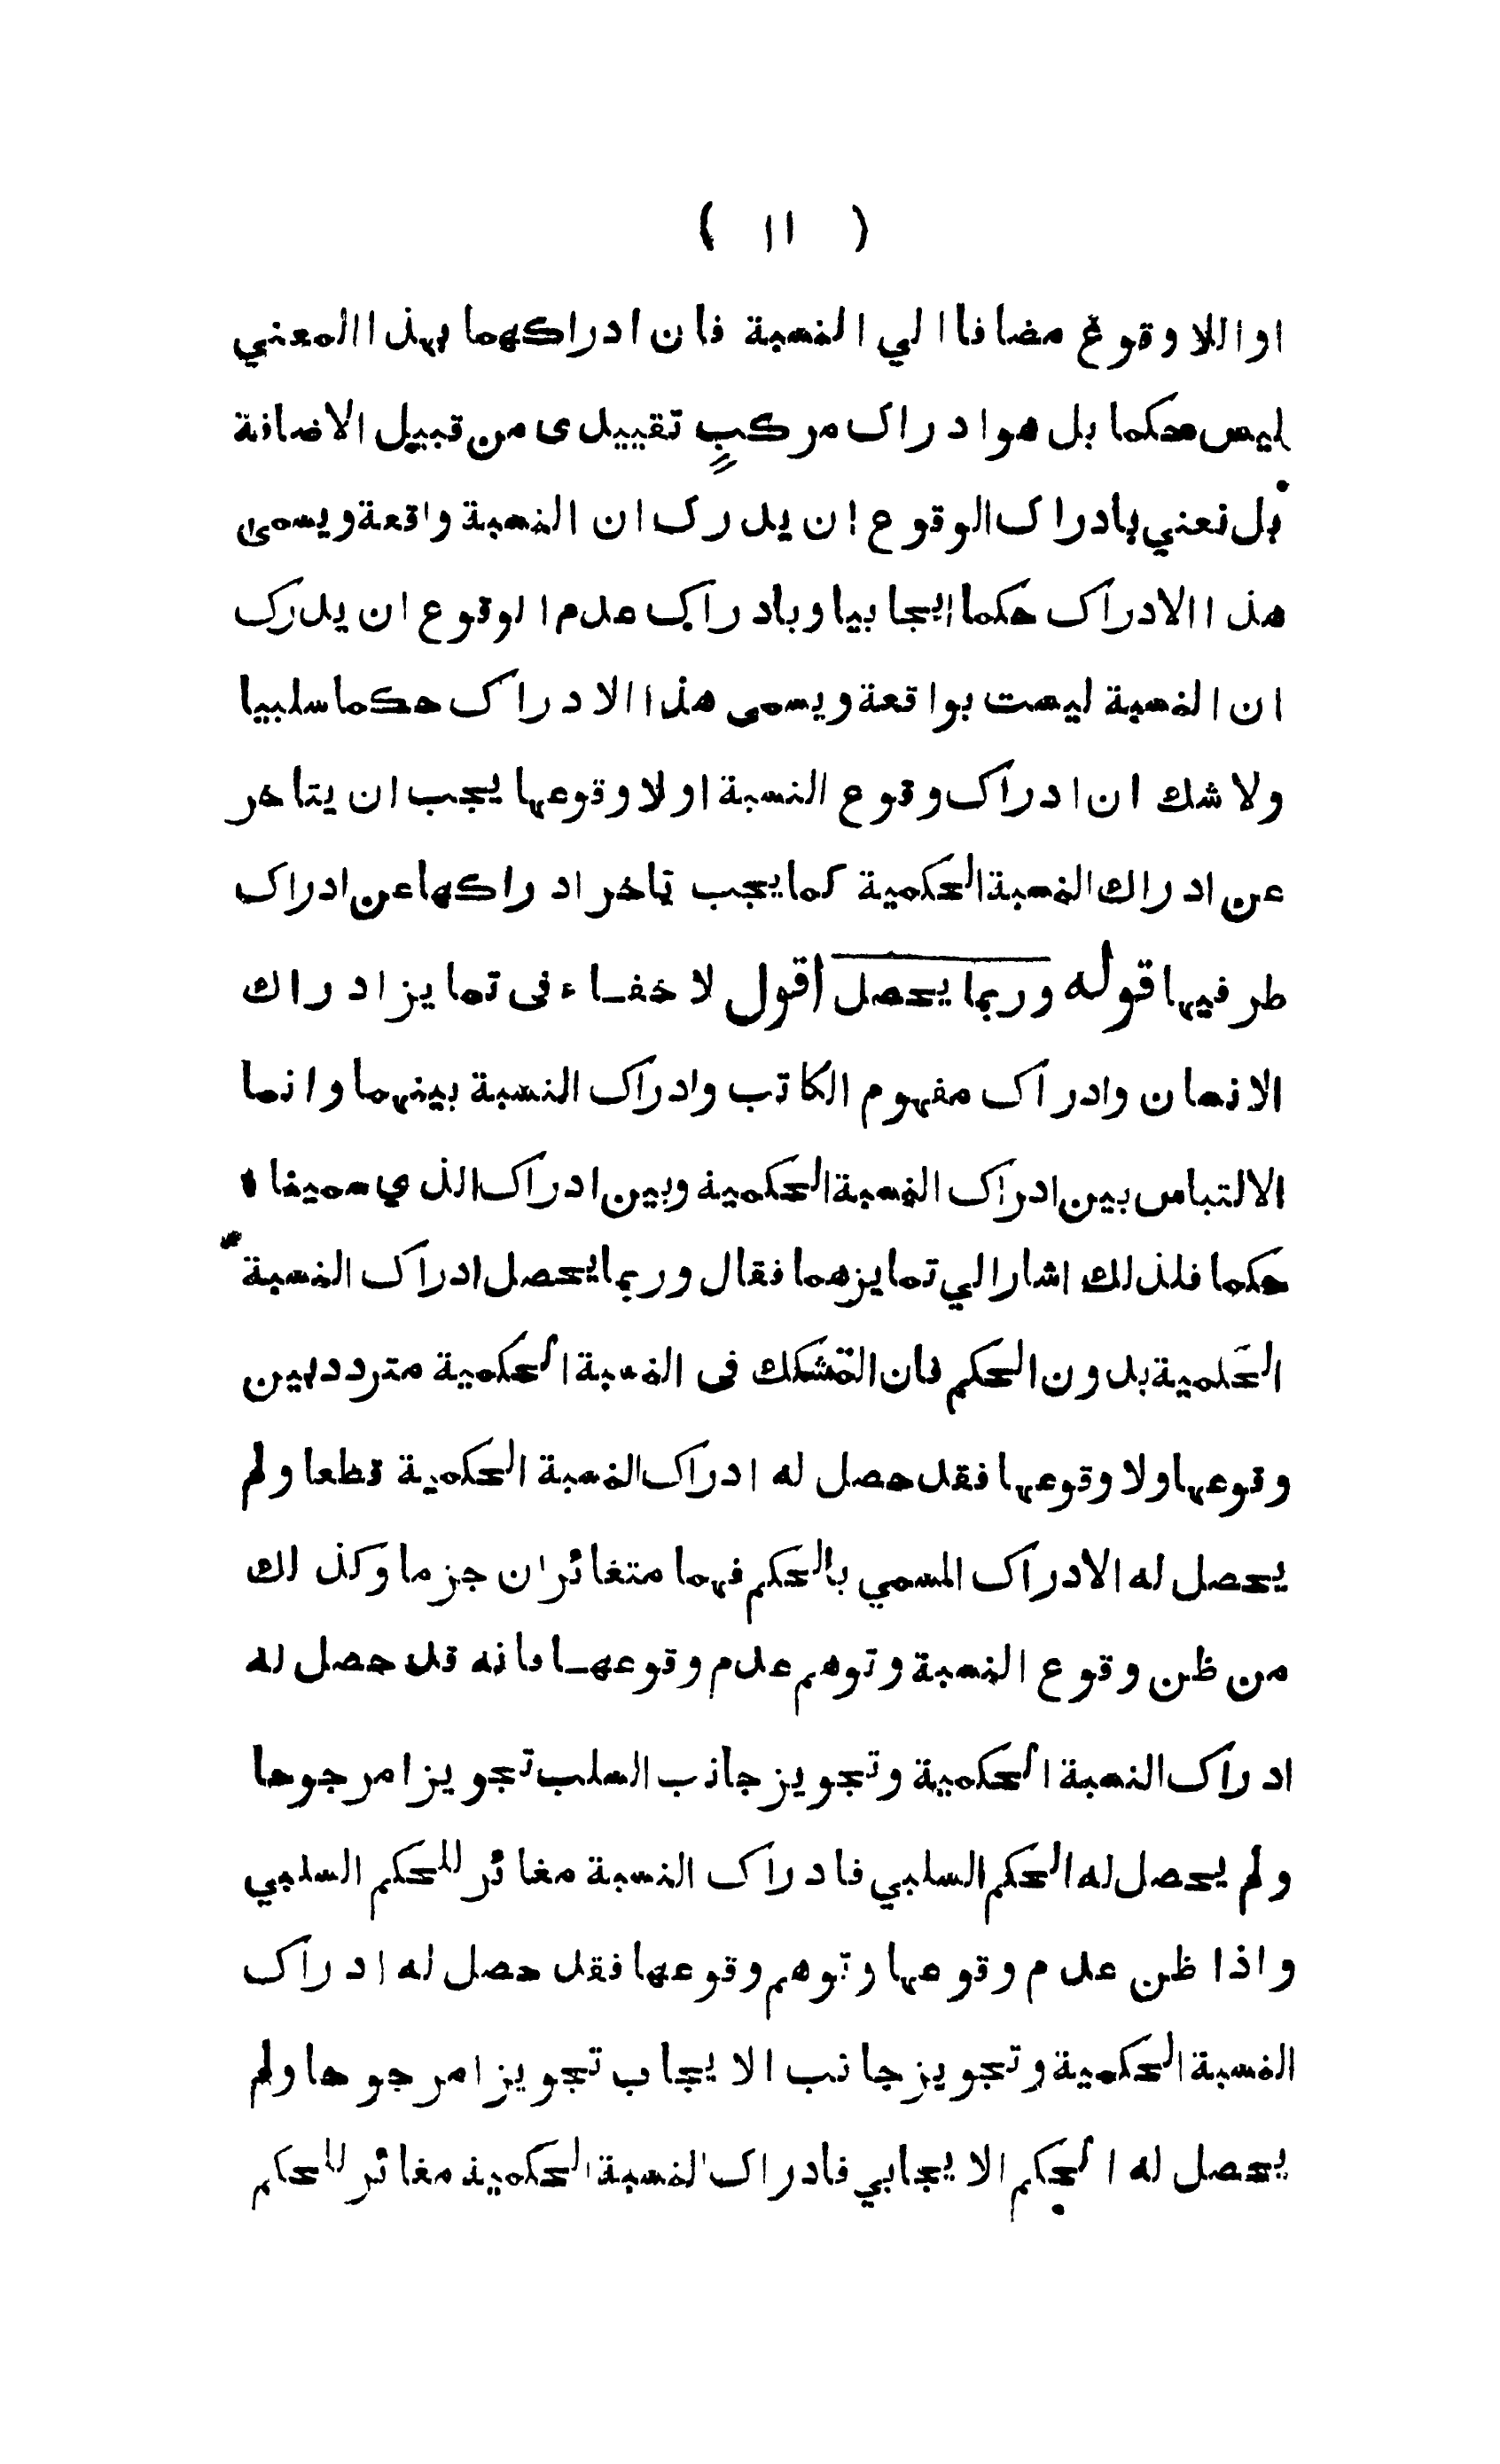 ( ١١ )
او اللا وقوع مضافا الي النسبة فان ادراكهما بهذا المعني
ليس حكما بل هو ادراک مركبٍ تقييدى من قبيل الاضافة
بل نعني بادراک الوقوع ان يدرک ان النسبة واقعة ويسمى
هذا الادراک حكما ايجابيا وبادراک عدم الوقوع ان يدرک
ان النسبة ليست بواقعة ويسمى هذا الادراک حكما سلبيا
ولا شك ان ادراک وقوع النسبة او لا وقوعها يجب ان يتاخر
عن ادراك النسبة الحكمية كما يجب تاخر ادراكها عن ادراک
طرفيها قوله وربما يحصل اقول لا خفاء فى تمايز ادراك
الانسان وادراک مفهوم الكاتب وادراک النسبة بينهما وانما
الالتباس بين ادراک النسبة الحكمية وبين ادراک الذي سميناه
حكما فلذلك اشار الي تمايزهما فقال وربما يحصل ادراک النسبة
الحكمية بدون الحكم فان التشكك فى النسبة الحكمية متردد بين
وقوعها ولا وقوعها فقد حصل له ادراک النسبة الحكمية قطعا ولم
يحصل له الادراک المسمي بالحكم فهما متغائران جزما وكذلك
من ظن وقوع النسبة وتوهم عدم وقوعها فانه قد حصل له
ادراک النسبة الحكمية وتجويز جانب السلب تجويزا مرجوحا
ولم يحصل له الحكم السلبي فادراک النسبة مغائر للحكم السلبي
واذا ظن عدم وقوعها وتوهم وقوعها فقد حصل له ادراک
النسبة الحكمية وتجويز جانب الايجاب تجويزا مرجوحا ولم
يحصل له الحكم الايجابي فادراک النسبة الحكمية مغائر للحكم